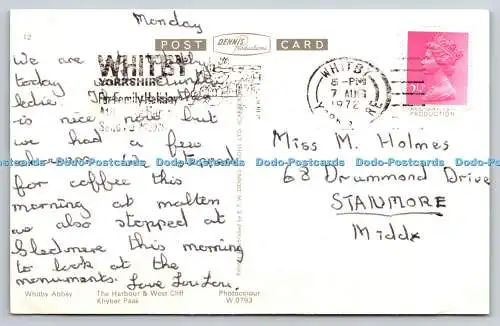 Monday
12
POST DENNIS Productions CARD
WHITBY
YORKSHIRE
For Family Holidays
WHITBY
PM
7 AUG
1972
YORKSHIRE
2½P
PRODUCTION
We are at
today
is nice now but
we had a few
showers. We stopped
for coffee this
morning at malton
also stopped at
Sledmere this morning
to look at the
monuments. Love Lou Lou.
Miss M. Holmes
68 Drummond Drive
STANMORE
Middx
Dodo-Postcards Dodo-Postcards Dodo-Postcards Dodo-Postcards Dodo-Postcards
Whitby Abbey The Harbour & West Cliff Photocolour
Khyber Pass W.0793